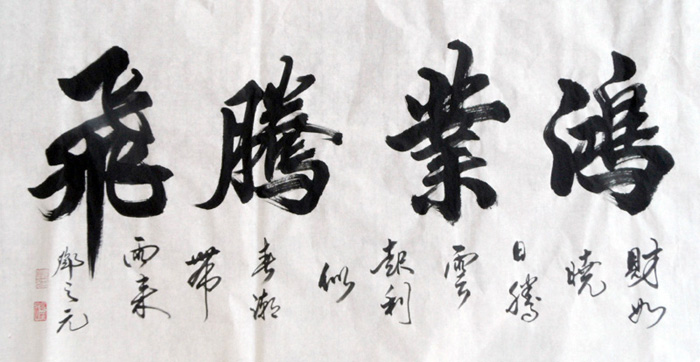 鴻業騰飛
財如
曉
日騰
雲
起利
似
春潮
帶
雨来
鄧之元